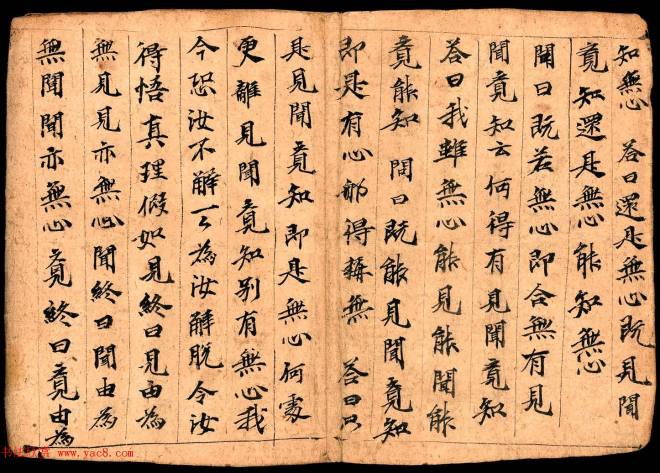 知無心 答曰還是無心既見聞
覺知還是無心能知無心
問曰既若無心即合無有見
聞覺知云何得有見聞覺知
答曰我雖無心能見能聞能
覺能知 問曰既能見聞覺知
即是有心那得稱無 答曰只
是見聞覺知即是無心何處
更離見聞覺知別有無心我
今恐汝不解一一為汝解脱令汝
得悟真理假如見終日見由為
無見見亦無心聞終日聞由為
無聞聞亦無心覺終日覺由為
书法欣赏 www.yac8.com